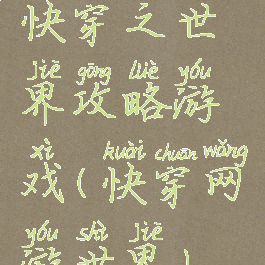 快穿之世
jiè gōng lüè yóu
界攻略游
xì kuài chuān wǎng
戏(快穿网
yóu shì jiè
游世界)